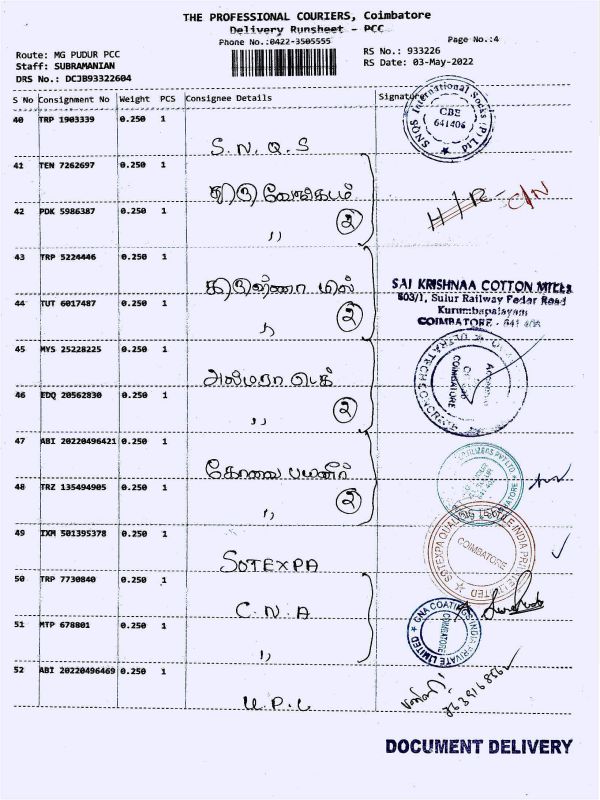 THE PROFESSIONAL COURIERS, Coimbatore
Delivery Runsheet - PCC
Phone No.:0422-3505555
Page No.:4
Route: MG PUDUR PCC
RS No.: 933226
Staff: SUBRAMANIAN
RS Date: 03-May-2022
DRS No.: DCJB93322604
S No Consignment No Weight PCS Consignee Details Signature
40 TRP 1903339 0.250 1
S.N.Q.S
SNQS International Socks (P) Ltd
CBE
641406
41 TEN 7262697 0.250 1
42 PDK 5986387 0.250 1
,, 2
C/N
43 TRP 5224446 0.250 1
கிருஷ்ணா மில்
SAI KRISHNAA COTTON MILLS
603/1, Sulur Railway Feder Road
Kurumbapalayam
COIMBATORE - 641
44 TUT 6017487 0.250 1
,, 2
45 MYS 25228225 0.250 1
COIMBATORE
46 EDQ 20562830 0.250 1
,, 2
47 ABI 20220496421 0.250 1
கோவை
48 TRZ 135494905 0.250 1
,, 2
49 IXM 501395378 0.250 1
SOTEXPA
SOTEXPA QUALIS TEXTILE INDIA PRIVATE LIMITED
COIMBATORE
50 TRP 7730840 0.250 1
C.N.A
51 MTP 678801 0.250 1
,,
CNA COATINGS INDIA PRIVATE LIMITED
COIMBATORE
52 ABI 20220496469 0.250 1
U.P.L
DOCUMENT DELIVERY